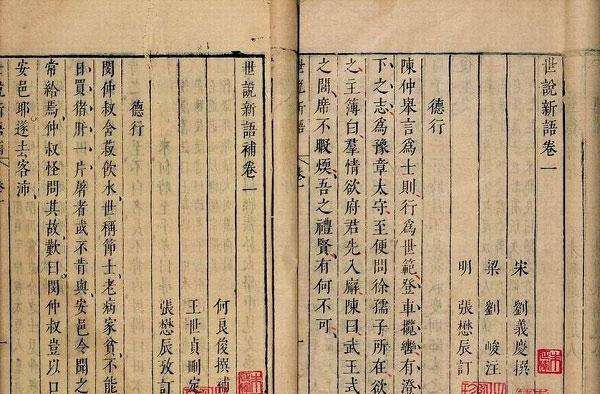 世說新語卷一
宋 劉義慶撰
梁 劉峻注
明 張懋辰訂
德行
陳仲舉言為士則行為世範登車攬轡有澄
下之志為豫章太守至便問徐孺子所在欲
之主簿曰羣情欲府君先入廨陳曰武王式
之閭席不暇煖吾之禮賢有何不可
世說新語 卷一
世說新語補卷一
何良俊撰補
王世貞刪定
張懋辰攷訂
德行
閔仲叔含菽飲水世稱節士老病家貧不能
日買猪肝一片屠者或不肯與安邑令聞之
常給焉仲叔怪問其故歎曰閔仲叔豈以口
安邑耶遂去客沛
世說新語補 卷一